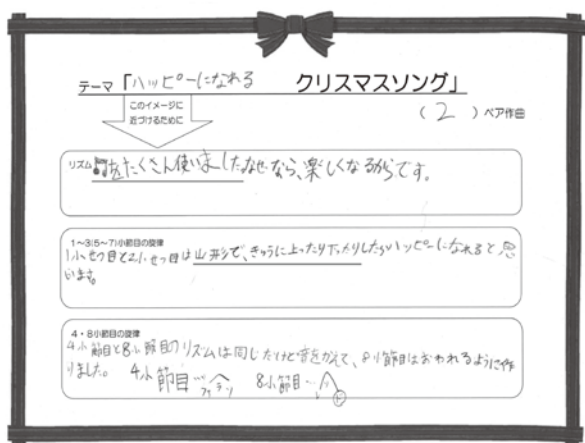 テーマ「ハッピーになれる クリスマスソング」
このイメージに
近づけるために
( 2 ) ペア作曲
リズム
♫をたくさん使いましたなぜなら、楽しくなるからです。
1~3(5~7)小節目の旋律
1小せつ目と2小せつ目は山形で、きゅうに上ったり下ったりしたらハッピーになれると思
います。
4・8小節目の旋律
4小節目と8小節目のリズムは同じだけど音をかえて、8小節目はおわれるように作
りました。 4小節目… 8小節目…
ファラソ
ド